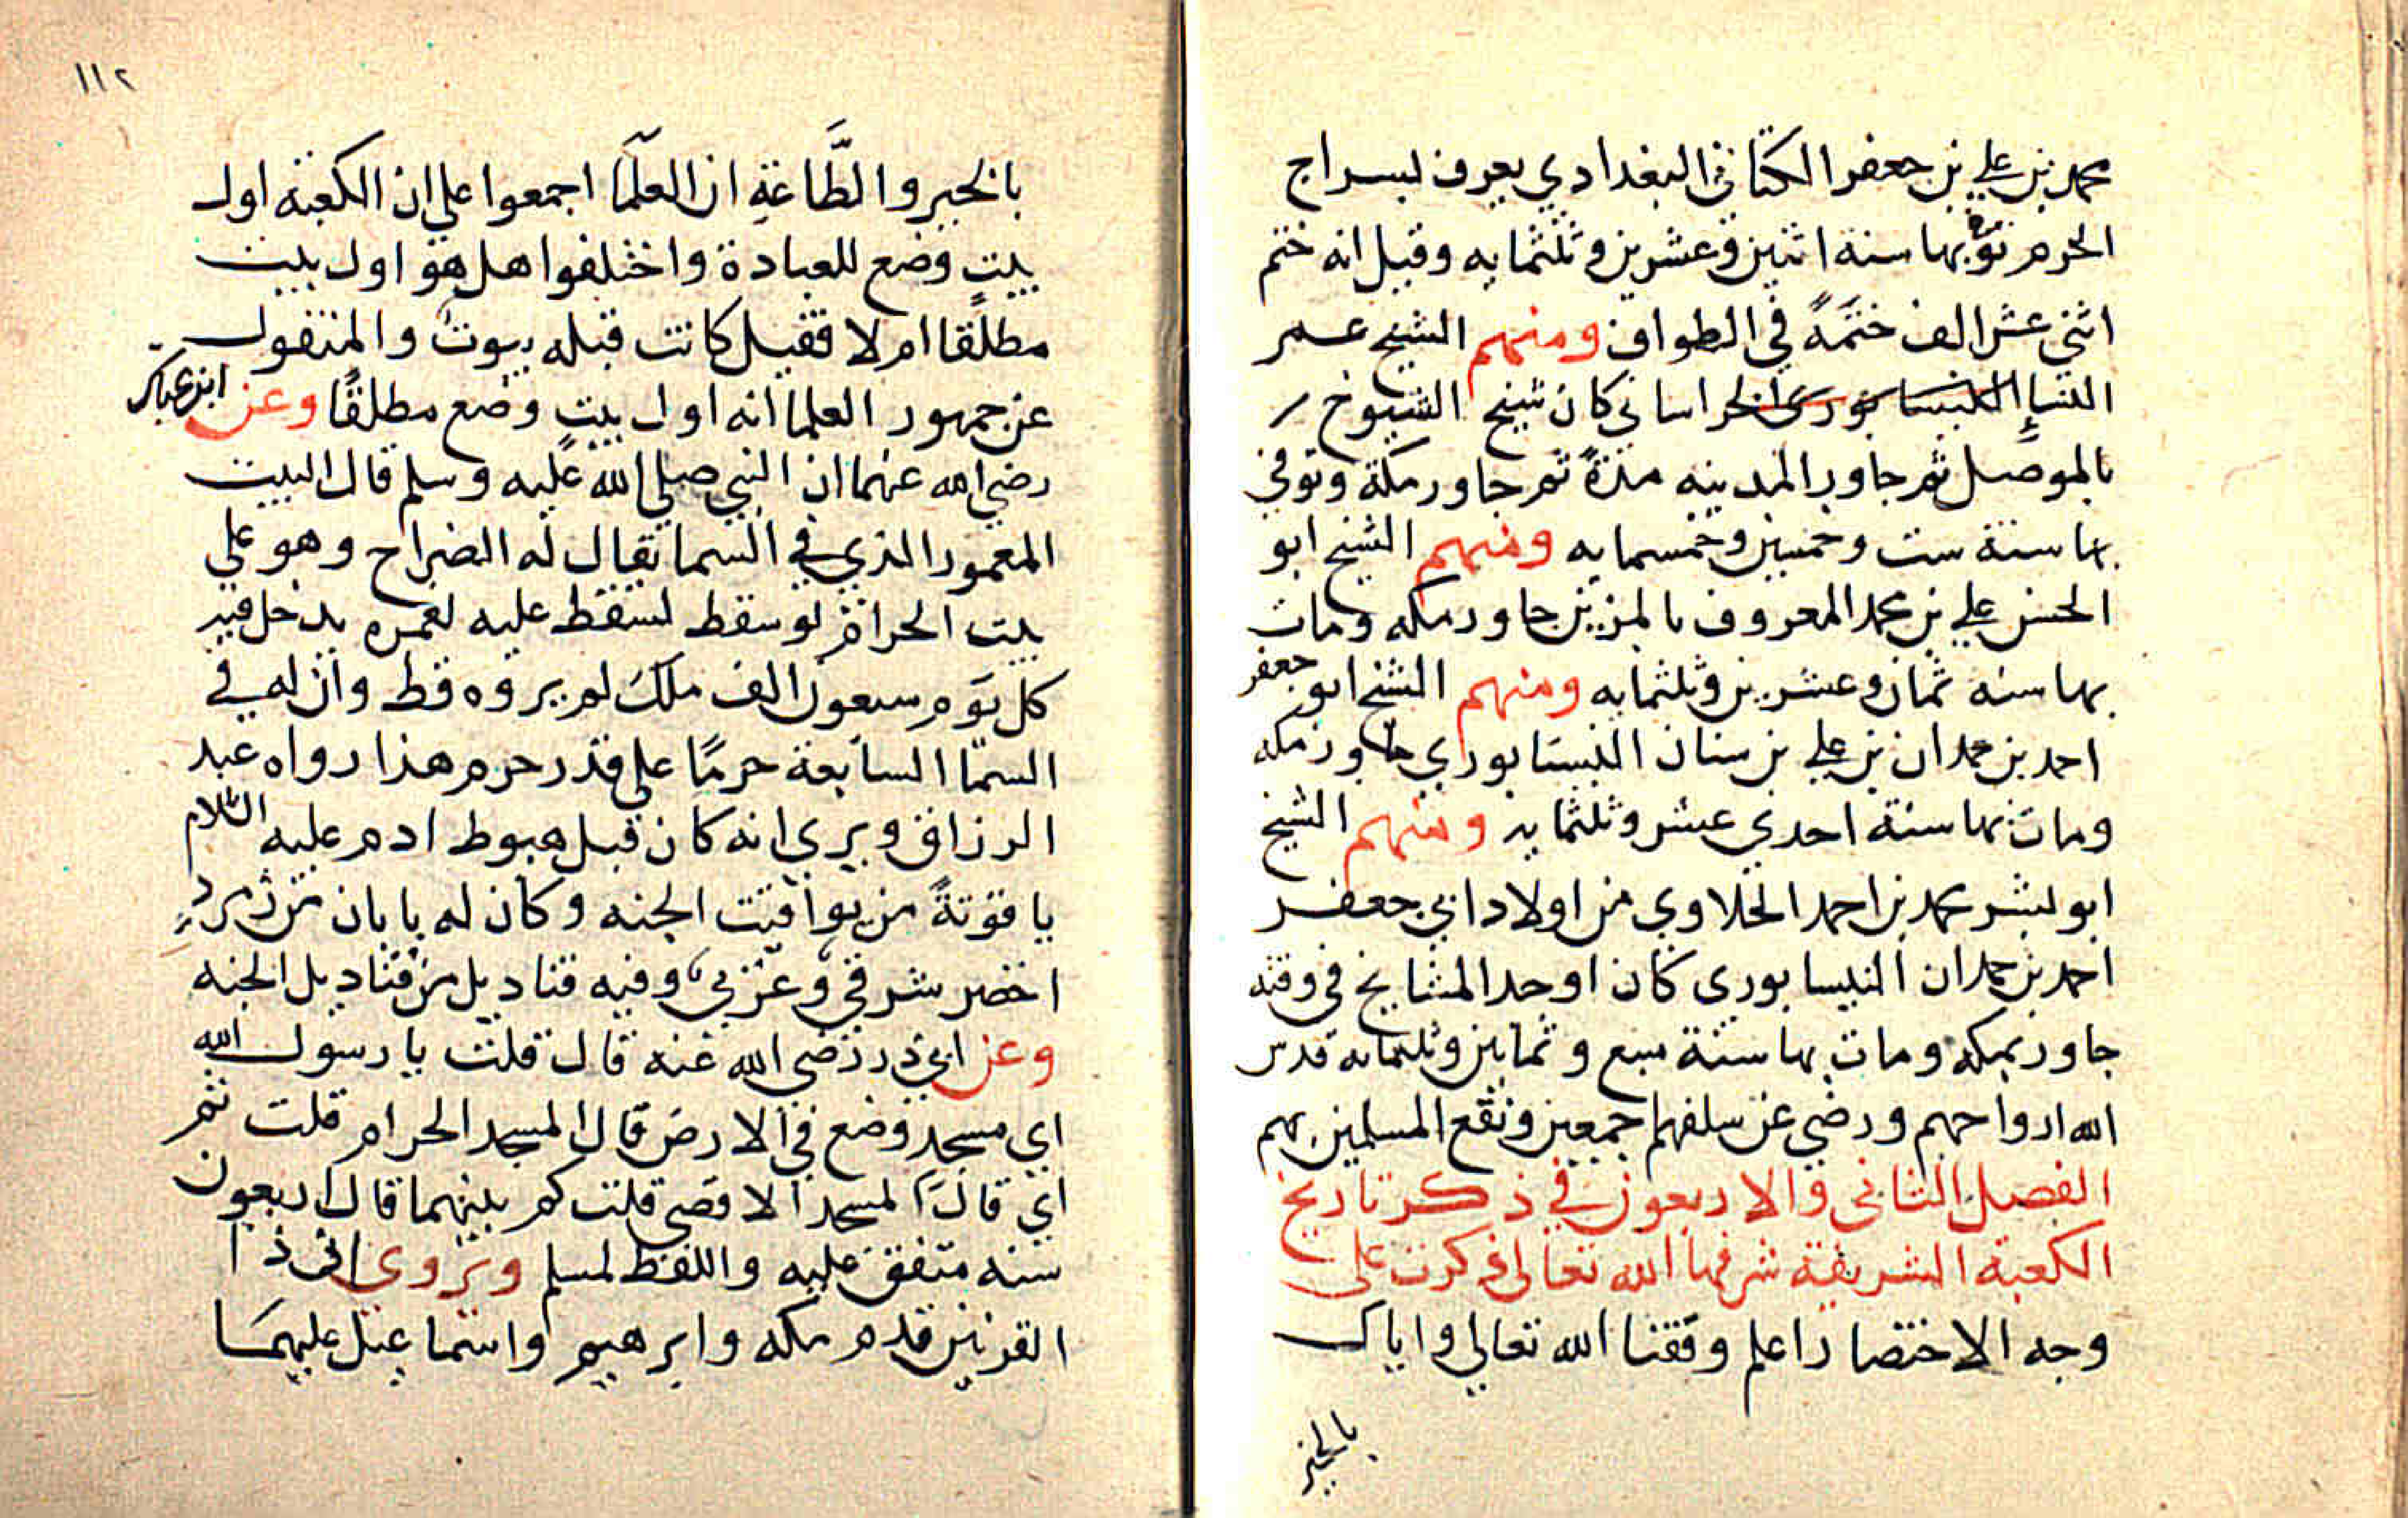 محمد بن علي بن جعفر الكتاني البغدادي يعرف بسراج
الحرم توفي بها سنة اثنين وعشرين وثلثمايه وقيل انه ختم
اثني عشر الف ختمة في الطواف ومنهم الشيخ عمر
النسائي النيسابوري الخراساني كان شيخ الشيوخ
بالموصل ثم جاور المدينه مدة ثم جاور مكة وتوفي
بها سنة ست وخمسين وخمسمايه ومنهم الشيخ ابو
الحسن علي بن محمد المعروف بالمزين جاور مكه ومات
بها سنه ثمان وعشرين وثلثمايه ومنهم الشيخ ابو جعفر
احمد بن حمدان بن علي بن سنان النيسابوري جاور مكه
ومات بها سنة احدي عشر وثلثمايه ومنهم الشيخ
ابو بشر محمد بن احمد الحلاوي من اولاد ابي جعفر
احمد بن حمدان النيسابوري كان اوحد المشايخ في وقته
جاور بمكه ومات بها سنة سبع وثمانين وثلثمايه قدس
الله ارواحهم ورضي عن سلفهم اجمعين ونفع المسلمين بهم
الفصل الثاني والاربعون في ذكر تاريخ
الكعبة الشريفة شرفها الله تعالي ذكرت علي
وجه الاختصار اعلم وفقنا الله تعالي واياك
بالخير
١١٢
بالخير والطَّاعَةِ ان العلمآ اجمعوا علي ان الكعبة اول
بيت وضع للعبادة واختلفوا هل هو اول بيت
مطلقًا ام لا فقيل كانت قبله بيوت والمنقول
عن جمهور العلما انه اول بيتٍ وضع مطلقًا وعن ابن عباس
رضي الله عنهما ان النبي صلي الله عليه وسلم قال البيت
المعمور الذي في السما يقال له الضراح وهو علي
بيت الحرام لو سقط لسقط عليه لعمره يدخل فيه
كل يوم سبعون الف ملك لم يروه قط وان له في
السمآ السابعة حرمًا علي قدر حرم هذا رواه عبد
الرزاق ويري انه كان قبل هبوط ادم عليه السلام
ياقوتةً من يواقيت الجنه وكان له بابان من زمرد
اخضر شرقي وغربي وفيه قناديل من قناديل الجنه
وعن ابي ذر رضي الله عنه قال قلت يا رسول الله
اي مسجد وضع في الارض قال المسجد الحرام قلت ثم
اي قال المسجد الاقصي قلت كم بينهما قال اربعون
سنه متفق عليه واللفظ لمسلم ويروي ان ذا
القرنين قدم مكه وابرهيم واسماعيل عليهما